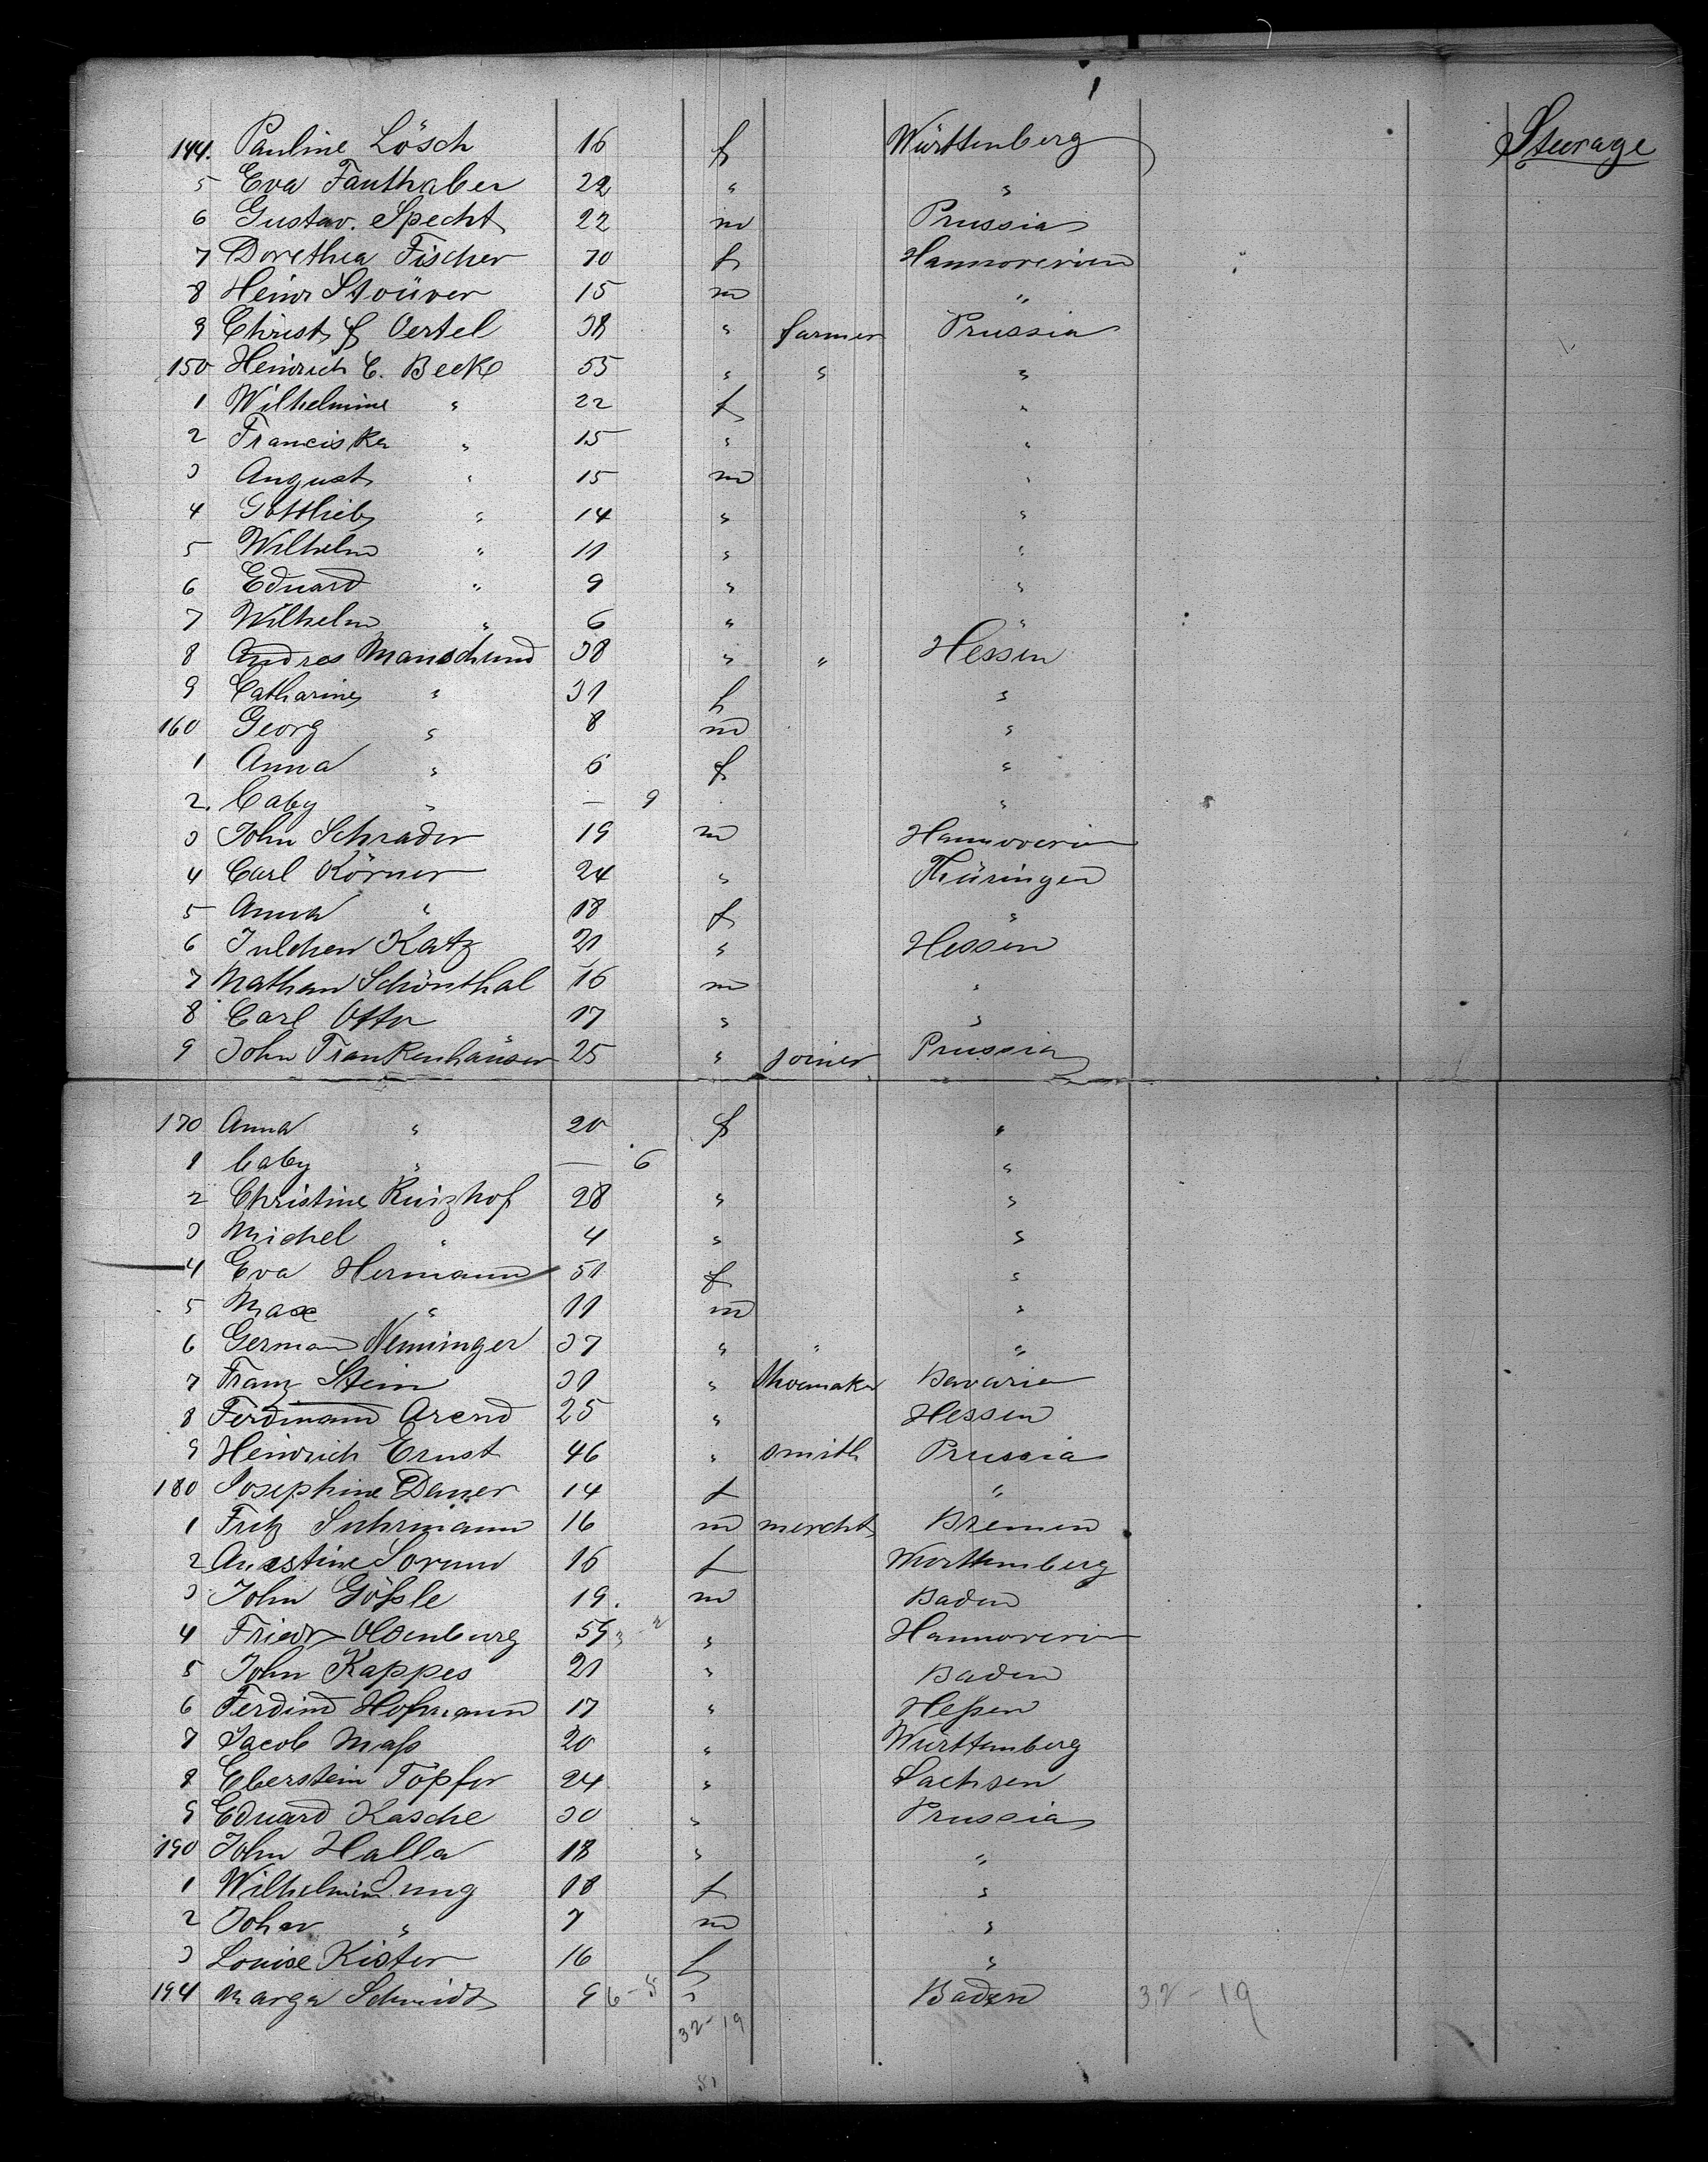 Steerage
144. Pauline Lösch 16 f Württenberg
5 Eva Fauthaber 22 " "
6 Gustav. Specht 22 m Prussia
7 Dorethea Fischer 70 f Hannoverien
8 Heinr Stoüver 15 m "
9 Christ f Oertel 38 " farmer Prussia
150 Heinrich C. Becke 55 " " "
1 Wilhelmine " 22 f "
2 Franciska " 15 " "
3 August " 15 m "
4 Gottlieb " 14 " "
5 Wilhelm " 11 " "
6 Eduard " 9 " "
7 Wilhelm " 6 " "
8 Andres Manschund 38 " " Hessen
9 Catharine " 31 f "
160 Georg " 8 m "
1 Anna " 6 f "
2. baby " — 9 "
3 John Schrader 19 m Hannoverien
4 Carl Körner 24 " Thüringen
5 Anna " 18 f "
6 Julchen Katz 21 " Hessen
7 Nathan Schönthal 16 m "
8 Carl Otto 17 " "
9 John Frankenhäuser 25 " joiner Prussia
170 Anna " 20 f "
1 baby " — 6 "
2 Christine Ruizhof 28 " "
3 Michel " 4 " "
4 Eva Hermann 51 f "
5 Max " 11 m "
6 German Nenninger 37 " " "
7 Franz Stein 31 " Shoemaker Bavaria
8 Ferdinand Arend 25 " Hessen
9 Heinrich Ernst 46 " smith Prussia
180 Josephine Daner 14 f "
1 Fritz Suhrmann 16 m mercht Bremen
2 Sorum 16 f Württemberg
3 John Gößle 19. m Baden
4 Friedr Oldenburg 59 " Hannoverien
5 John Kappes 21 " Baden
6 Ferdind Hofmann 17 " Heßen
7 Jacob Maß 20 " Württemberg
8 Eberstein Töpfer 24 " Sachsen
9 Eduard Kasche 30 " Prussia
190 John Halla 18 " "
1 Wilhelmine Jung 18 f "
2 Johan " 7 m "
3 Louise Kister 16 f "
194 Marga Schmidt 9 6-5 " Baden 32-19
32-19